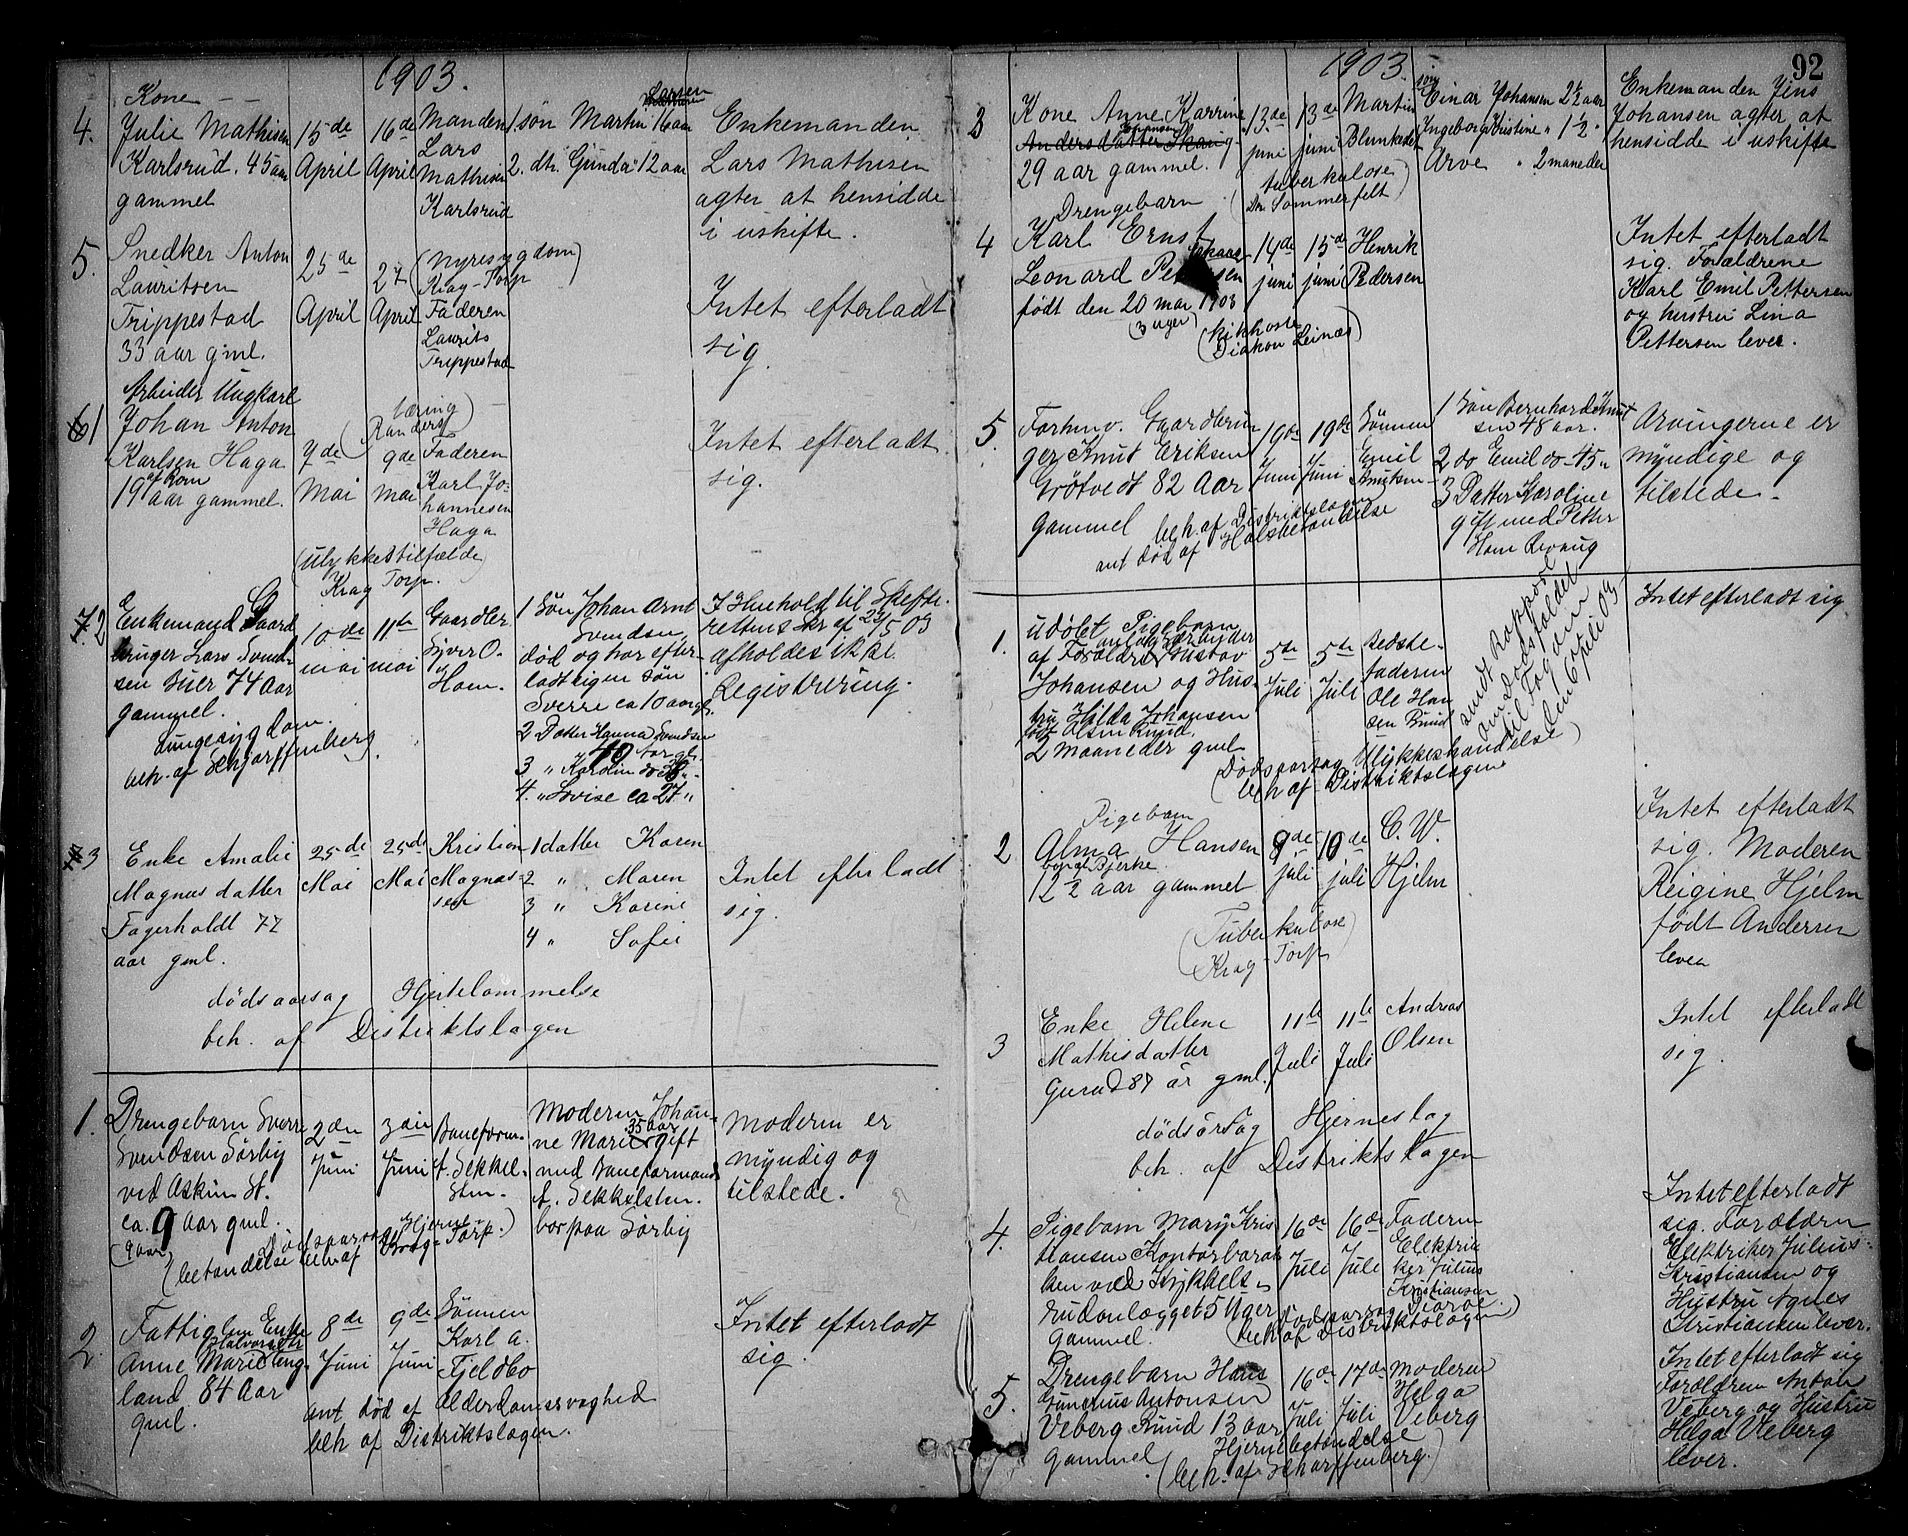 1903.
Kone
4. Julie Mathisen 15de 16de Manden 1. søn Martin Larsen 16 aar Enkemanden
Karlsrud. 45 aar April April Lars 2. dtr. Gunda 12 aar Lars Mathisen
gammel Mathisen agter at hensidde
Karlsrud i uskifte.
5. Snedker Anton 25de 27 (Nyresygdom)
Lauritsen April April Krag-Torp Intet efterladt
Trippestad Faderen sig.
33 aar gml. Laurits
Trippestad
Arbeider Ungkarl
61 Johan Anton (Tæring Intet efterladt
Karlsen Haga 7de 9de Randers) sig.
af Rom Mai mai Faderen
19 aar gammel. Karl Jo-
hannesen
Haga
(ulykkestilfælde
Krag Torp.
72 Enkemand Gaard 10de 11te Gaardbr 1 Søn Johan Arnt I Huehold til Skifte-
bruger Lars Svend- mai mai Syver O. Svendsen rettens skr af 29/5 03
sen Suer 74 Aar Hom. død og har efter- afholdes ikke
gammel. ladt egen søn Registrering.
Lungesygdom. Sverre ca 10 aar gl.
beh. af Scharffenberg. 2 Datter Hanna Svendsen
40 aar gl.
3 " Karolin do
4. " Lovise ca 27 "
3 Enke Amalie 25de 25de Kristian 1 datter Karen Intet efterladt
Magnesdatter Mai Mai Magnes- 2 " Maren sig.
Fagerholdt 77 sen 3 " Karine
aar gml. 4 " Sofie
dødsaarsag Hjertelammelse
beh. af Distriktslægen
1. Drengebarn Sverre 2den 3die Baneform. Moderen Johan- Moderen er
Svendsen Sørby Juni Juni A. Sekkel- ne Marie 35 aar gift myndig og
ved Askim St. sten. med Baneformand tilstede.
ca. 9 aar gml. A. Sekkelsten.
(9 aar) Dødsaarsag Hjerne- bor paa Sørby
(betændelse beh af Krag-Torp.)
2. Fattiglem Enke 8de 9de Sønnen Intet efterladt
Halvorsdtr Juni Juni Karl A. sig.
Anne Marie Eng- Fjeldbo
land 84 Aar ant død af Alderdomssvaghed
gml. beh af Distriktslægen.
1903. 92
3 Kone Anne Karrine 13de 13de Martin søn Einar Johansen 2½ aar Enkemanden Jens
Andersdatter Skaug juni juni Blunkedal Ingeborg Kristine " 1½ " Johansen agter at
29 aar gammel. tuberkulose) Arve " 2 maaneder hensidde i uskifte
(Dr Sommerfelt
Drengebarn
4 Karl Ernst 14de 15de Henrik Intet efterladt
Leonard Pettersen juni juni Pedersen sig. Forældrene
født den 20 mai 1903 Karl Emil Pettersen
(3 uger) (kikhoste og hustru Lina
Diakon Leinæs) Pettersen lever.
5. Forhenv. Gaardbru- 19de 19de Sønnen 1 Søn Bernhard Knut- Arvingerne er
ger Knut Eriksen Juni Juni Emil sen 48 aar. myndige og
Grøtvedt 82 Aar Knutsen 2 do Emil do 45 " tilstede.
gammel beh. af Distriktslægen 3 Datter Karoline
ant død af Halsbetændelse gift med Petter
Hom Revaug
1. udøbt Pigebarn 5te 5te Bedste- sendt Rapport Intet efterladt sig.
anlægsarbeider Juli Juli faderen om Dødsfaldet
af Forældre Gustav Ole Han til Fogden
Johansen og Hus- sen Ruud den 6te Juli 03
tru Hilda Johansen
født Olsen Ruud.
2 maaneder gml
(Dødsaarsag Ulykkeshændelse)
beh af Distriktslægen
Pigebarn
2 Alma Hansen 9de 10de C. W. Intet efterladt
boraf Bjerke juli juli Hjelm sig. Moderen
12½ aar gammel Reigine Hjelm
(Tuberkulose) født Andersen
Krag-Torp lever
3 Enke Helene 11te 11te Andreas Intet efterladt
Mathisdatter Juli Juli Olsen sig.
Gurud 87 år gml.
dødsårsag Hjerneslag
beh. af Distriktslægen
4. Pigebarn Mary Kris 16de 16de Faderen Intet efterladt
tiansen Kontorbarak Juli Juli Elektri sig. Forældren
ken ved Kykkels- ker Julius Elektriker Julius
rudanlægget 5 Uger Kristiansen Kristiansen og
gammel. (Dødsaarsag Diaroe.) Hustru Agnes
beh af Distriktslægen Kristiansen lever.
5. Drengebarn Hans 16de 17de Moderen Intet efterladt sig
Gunerius Antonsen Juli Juli Helga Forældren Anton
Veberg Ruud 13 aar Veberg Veberg og Hustru
gammel. Hjernebetændelse Helga Veberg
(beh. af Scharffenberg.) lever.